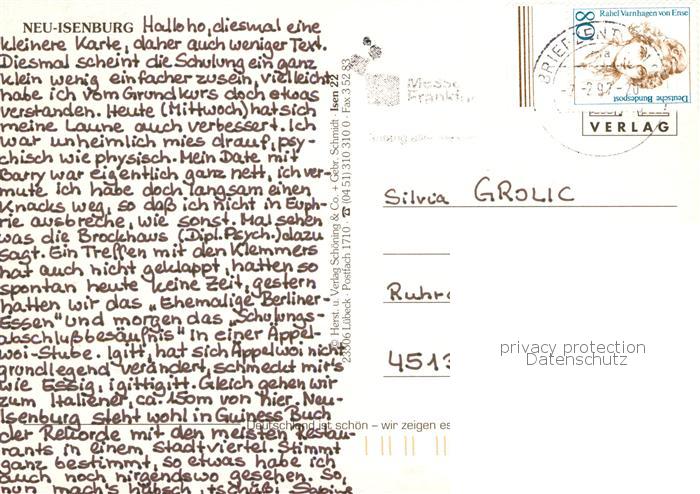 NEU-ISENBURG Halloho, diesmal eine
kleinere Karte, daher auch weniger Text.
Diesmal scheint die Schulung ein ganz
klein wenig einfacher zu sein, vielleicht
habe ich vom Grundkurs doch etwas
verstanden. Heute (Mittwoch) hat sich
meine Laune auch verbessert. Ich
war unheimlich mies drauf, psy-
chisch wie physisch. Mein Date mit
Barry war eigentlich ganz nett, ich ver-
mute ich habe doch langsam einen
Knacks weg, so daß ich nicht in Euph-
rie ausbreche, wie sonst. Mal sehen
was die Brockhaus (Dipl. Psych.) dazu
sagt. Ein Treffen mit den Klemmers
hat auch nicht geklappt, hatten so
spontan heute keine Zeit, gestern
hatten wir das „Ehemalige Berliner-
Essen" und morgen das „Schulungs-
abschlußbesäufnis" in einer Äppel-
woi-Stube. Igitt, hat sich Äppelwoi nicht
grundlegend verändert, schmeckt mir's
wie Essig, igittigitt. Gleich gehen wir
zum Italiener, ca. 150m von hier. Neu-
Isenburg steht wohl in Guiness Buch
der Rekorde mit den meisten Restau-
rants in einem Stadtviertel. Stimmt
ganz bestimmt, so etwas habe ich
auch noch nirgendswo gesehen. So,
nun mach's hübsch, tschäßi Sabine
© Herst. u. Verlag Schöning & Co. + Gebr. Schmidt Isen 22
23506 Lübeck · Postfach 1710 · ☎ (04 51) 310 310 0 · Fax 3 52 83
Deutschland ist schön – wir zeigen es
Messe
Frankfurt
80
Rahel Varnhagen von Ense
Deutsche Bundespost
BRIEFZENTR
VERLAG
Silvia GROLIC
Ruhr
4513
privacy protection
Datenschutz